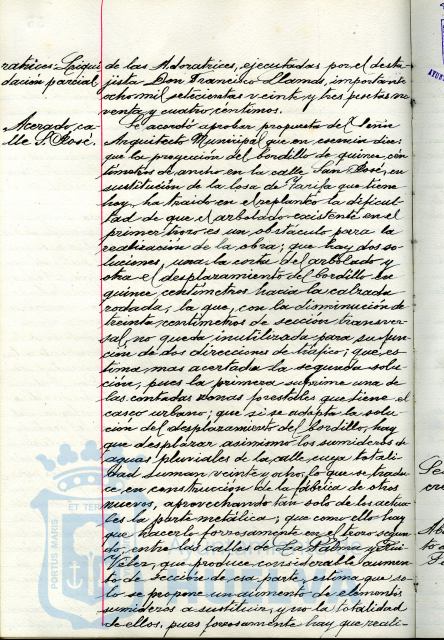 ratrices. Liqui
dación parcial
de las Adoratrices, ejecutadas por el desta-
jista Don Francisco Llamas, importante
ocho mil setecientas veinte y tres pesetas no
venta y cuatro céntimos.
Acerado, ca
lle S. José.
Se acordó aprobar propuesta del Señor
Arquitecto Municipal que en esencia dice:
que la proyección del bordillo de quince cén
timetros de ancho en la calle San José, en
sustitución de la losa de Tarifa que tiene
hoy, ha traido en el replanteo la dificul-
tad de que el arbolado existente en el
primer trozo es un obstáculo para la
realización de la obra; que hay dos so-
luciones, una la corta del arbolado y
otra el desplazamiento del bordillo los
quince centímetros hacia la calzada
rodada, la que, con la disminución de
treinta centímetros de sección transver-
sal, no queda inutilizada para su fun-
ción de dos direcciones de tráfico; que es-
tima mas acertada la segunda solu-
ción, pues la primera suprime una de
las contadas zonas forestales que tiene el
casco urbano; que si se adopta la solu-
ción del desplazamiento del bordillo, hay
que desplazar asimismo los sumideros de
aguas pluviales de la calle, cuya totali-
dad suman veinte y ocho, lo que se tradu-
ce, en construcción de la fábrica de otros
nuevos, aprovechando tan solo de los actua-
les la parte metálica; que como ello hay
que hacerlo forzosamente en el trozo segun
do, entre las calles de La Palma y Rui
Velez, que produce considerable aumen-
to de sección de esa parte, estima que so-
lo se propone un aumento de elementos
sumideros a sustituir, y no la totalidad
de ellos, pues forzosamente hay que reali-
PORTUS MARIS
ET TERRAE